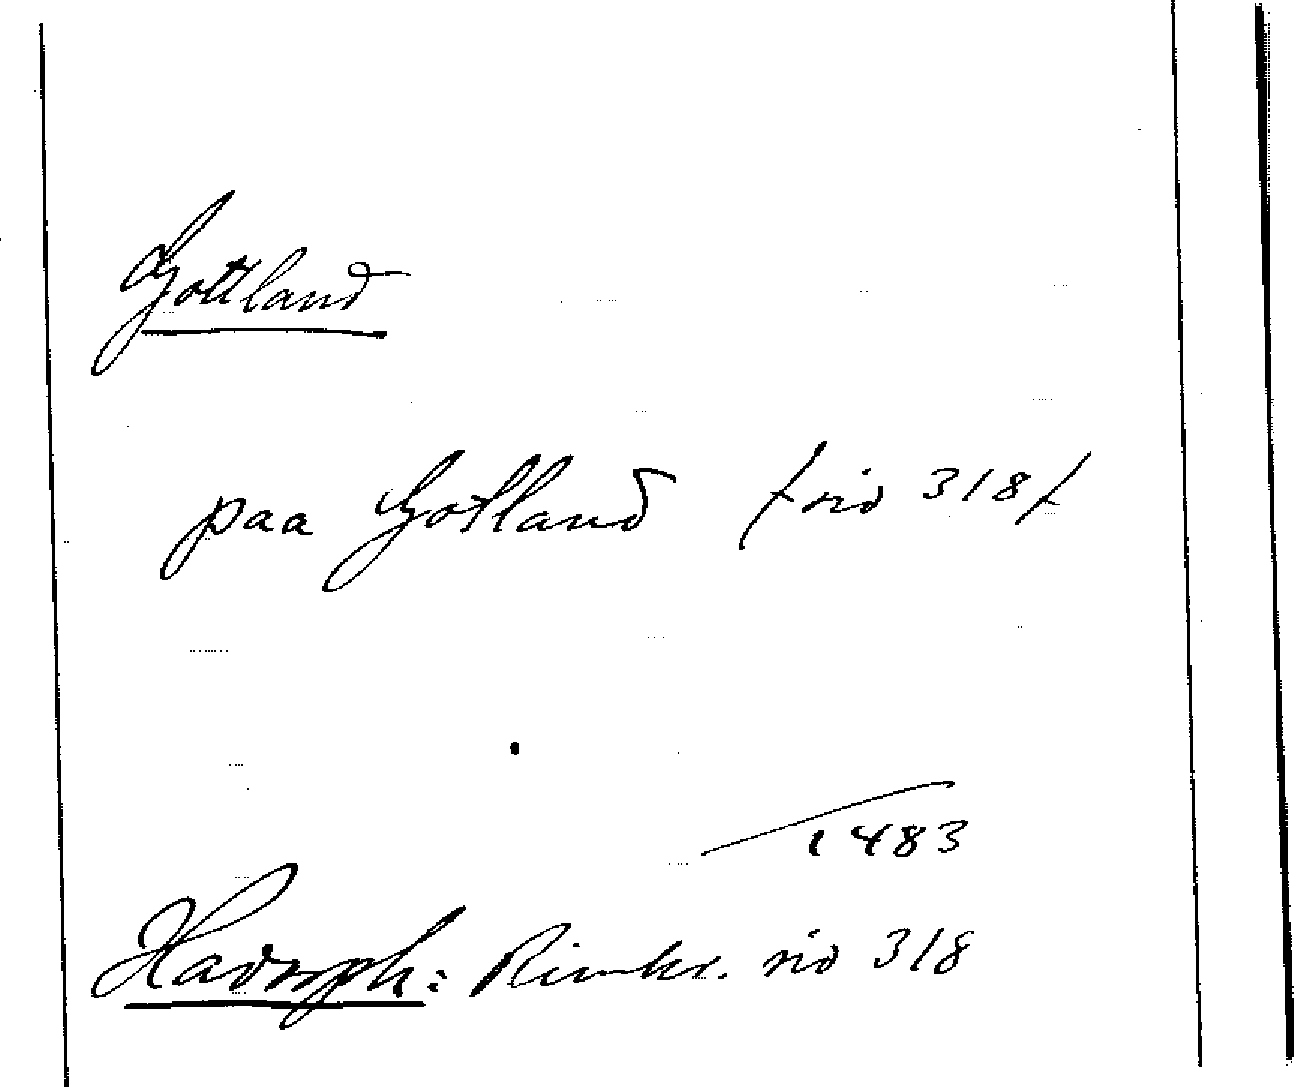 Gottland
paa Gotland / sid 318 /
1483
Hadorph: Rimkr. sid 318